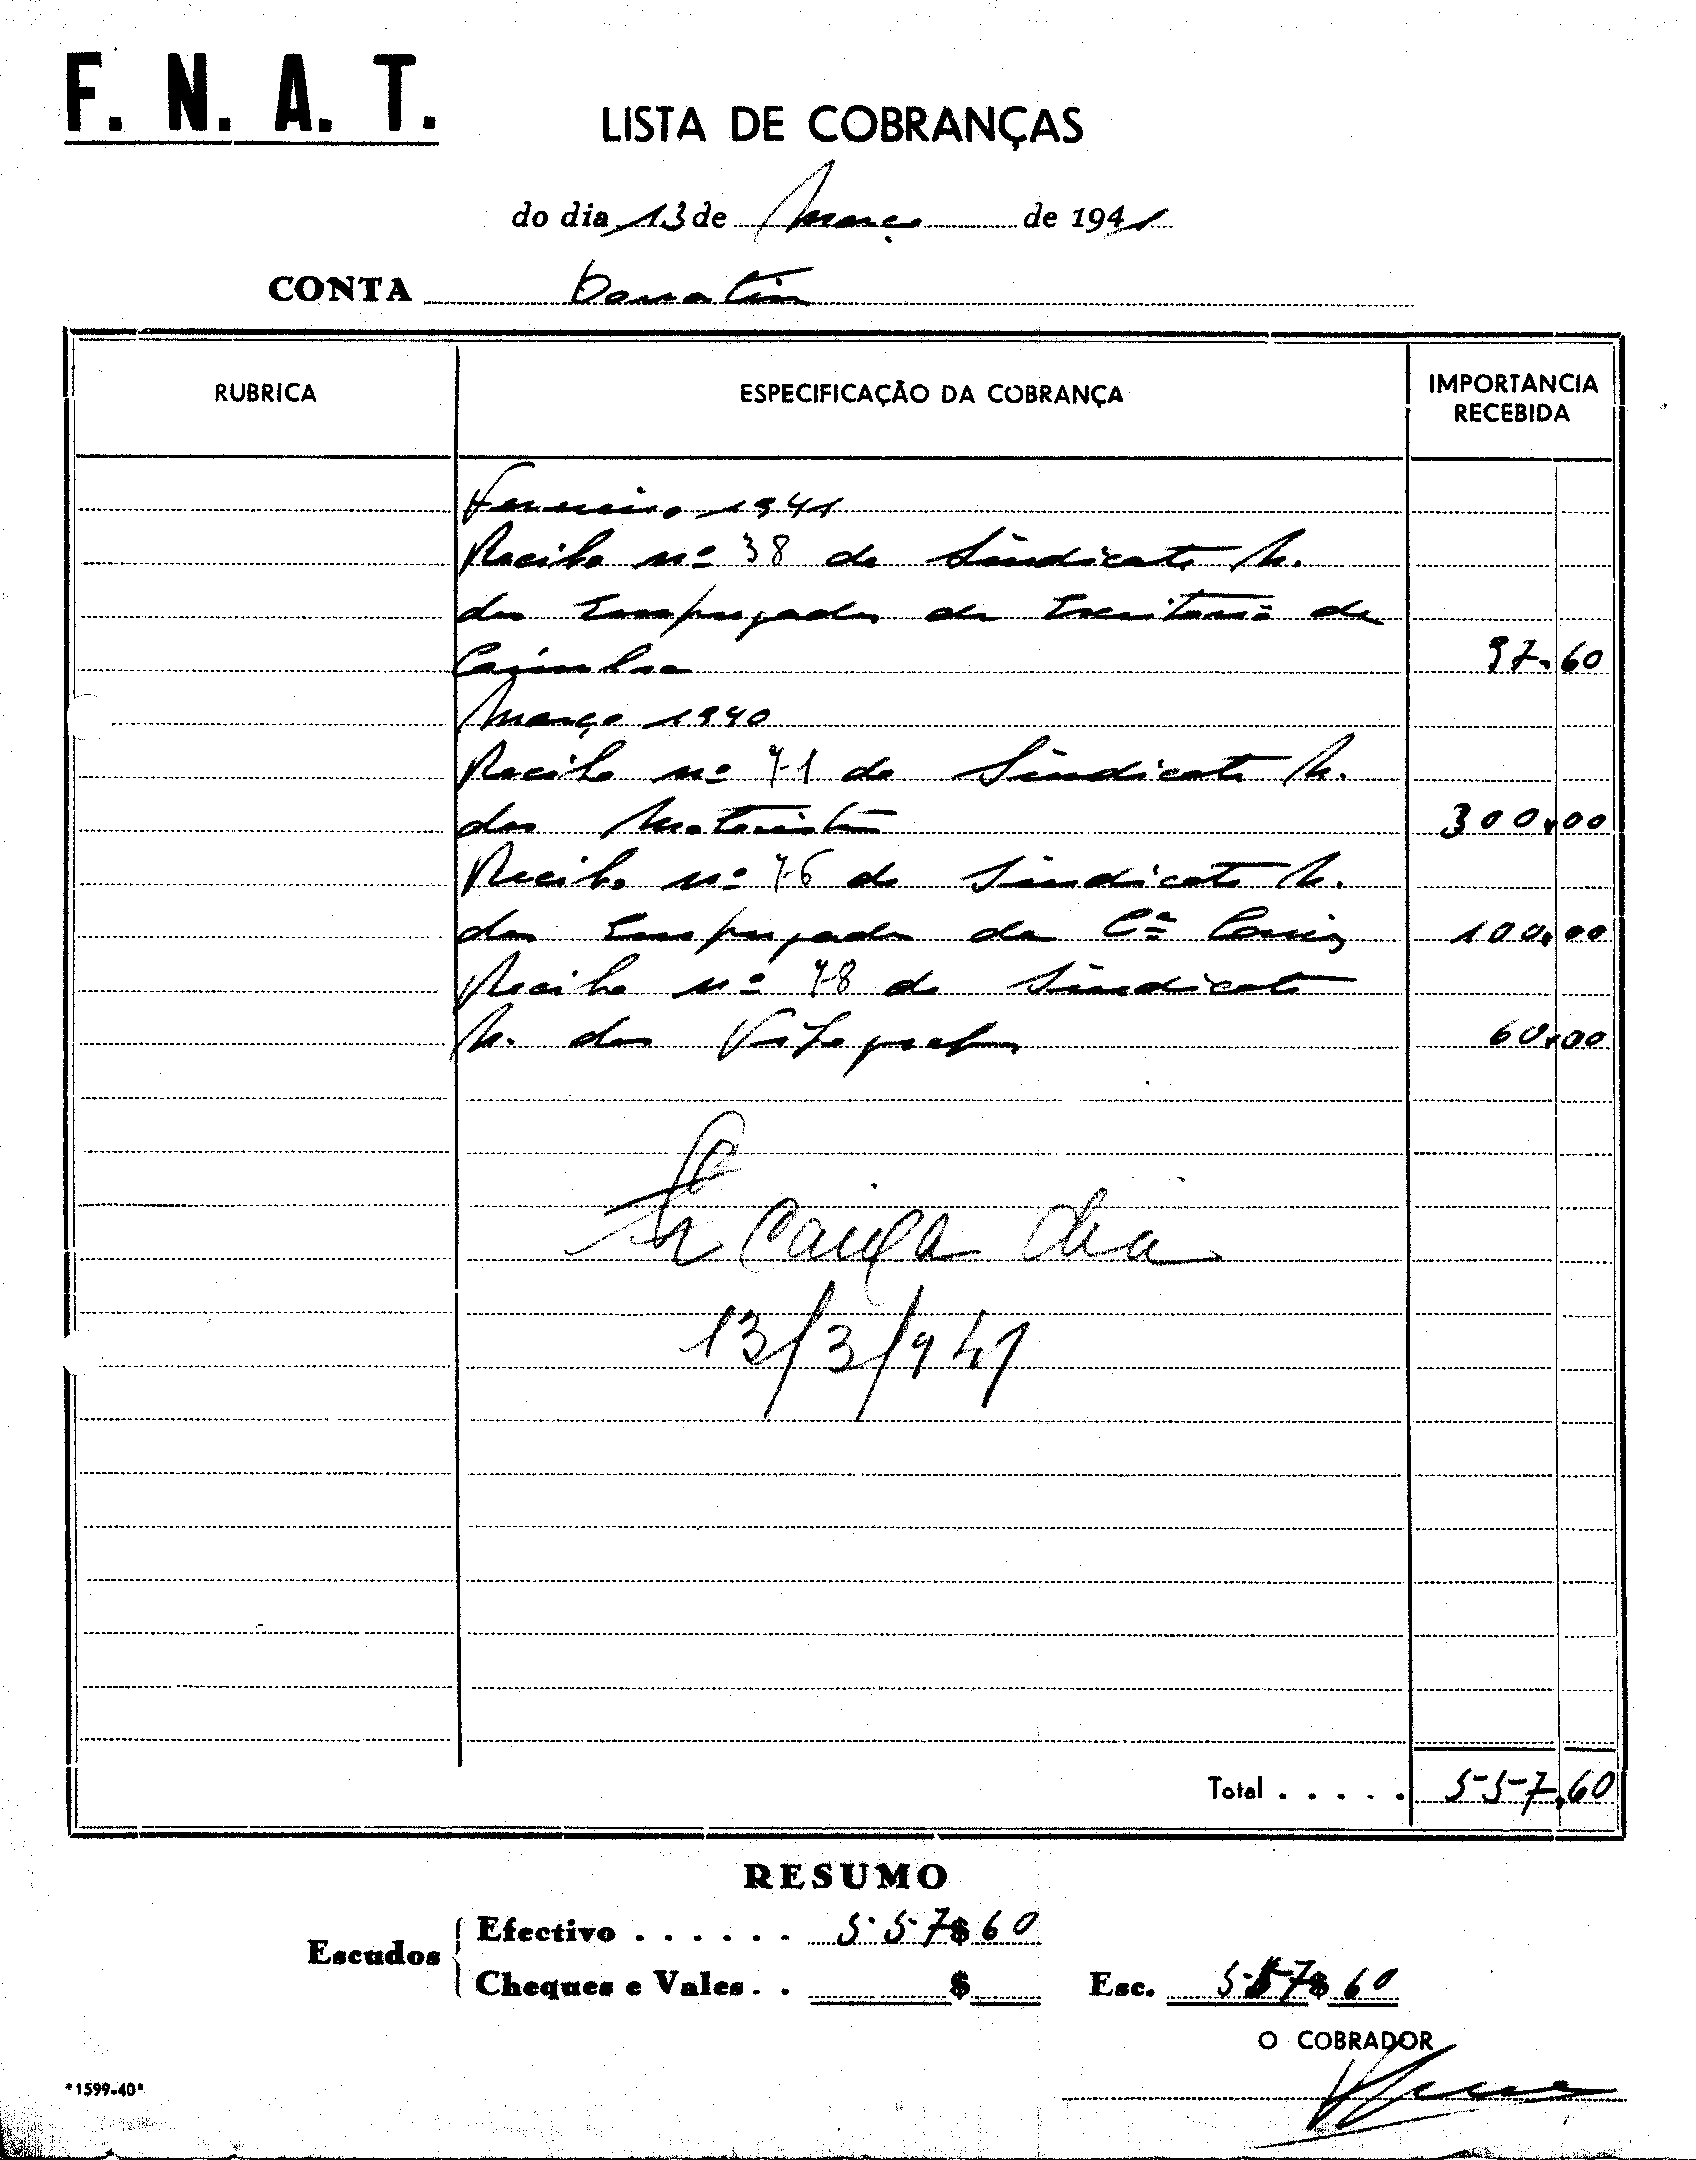 F. N. A. T.
LISTA DE COBRANÇAS
do dia 13 de Março de 1941
CONTA
RUBRICA
ESPECIFICAÇÃO DA COBRANÇA
IMPORTANCIA
RECEBIDA
Fevereiro 1941
Recibo nº 38 do Sindicato N.
dos Empregados de Escritorio de
Coimbra 97.60
Março 1940
Recibo nº 71 do Sindicato N.
dos Motoristas 300.00
Recibo nº 76 do Sindicato N.
dos Empregados da Cª Carris 100.00
Recibo nº 78 do Sindicato
N. dos 60.00
Caixa dia
13/3/941
Total . . . . . 557.60
RESUMO
Escudos
Efectivo . . . . . . 557$60
Cheques e Vales. . $
Esc. 557$60
O COBRADOR
"1599-40"